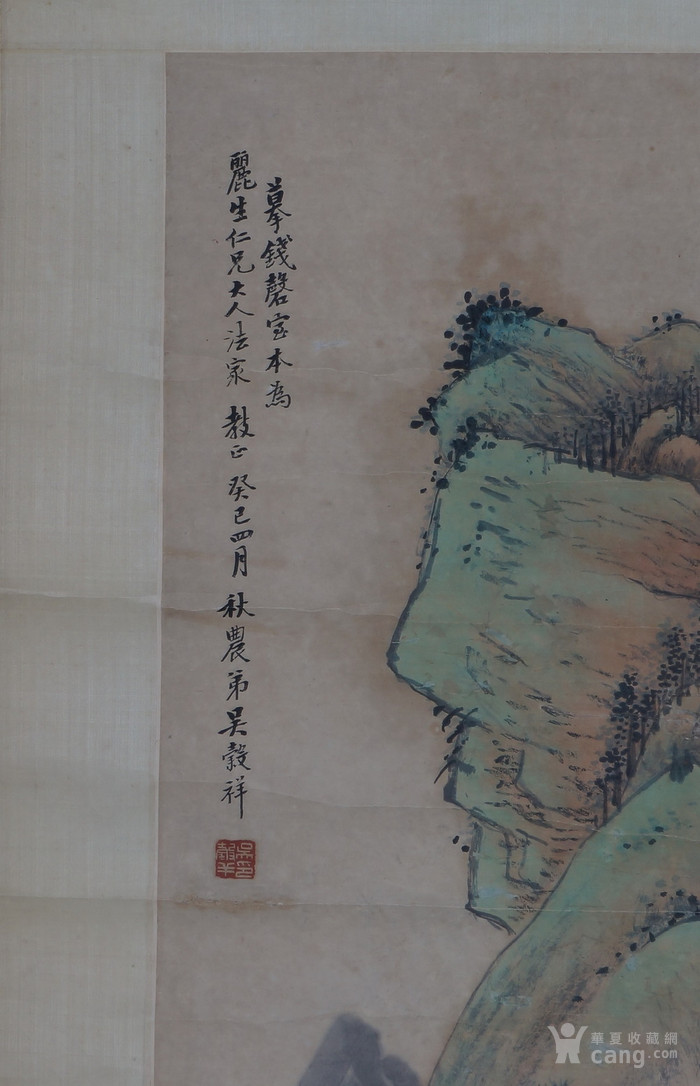 摹錢磬室本為
麗生仁兄大人法家 教正 癸巳四月 秋農弟吳穀祥
吳印
穀羊
華夏收藏網
cang.com